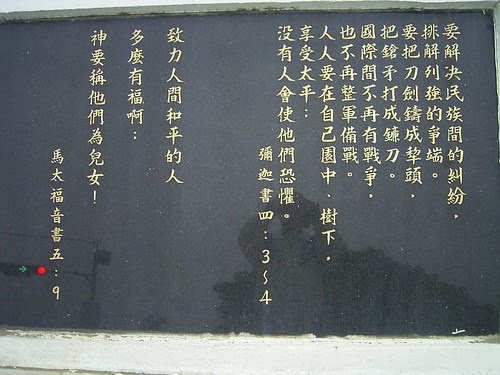 要解決民族間的糾紛，
排解列強的爭端。
要把刀劍鑄成犂頭，
把鎗矛打成鐮刀。
國際間不再有戰爭，
也不再整軍備戰。
人人要在自己園中 樹下，
享受太平；
沒有人會使他們恐懼。
彌迦書四：3～4
致力人間和平的人
多麼有福啊；
神要稱他們為兒女！
馬太福音書五：9